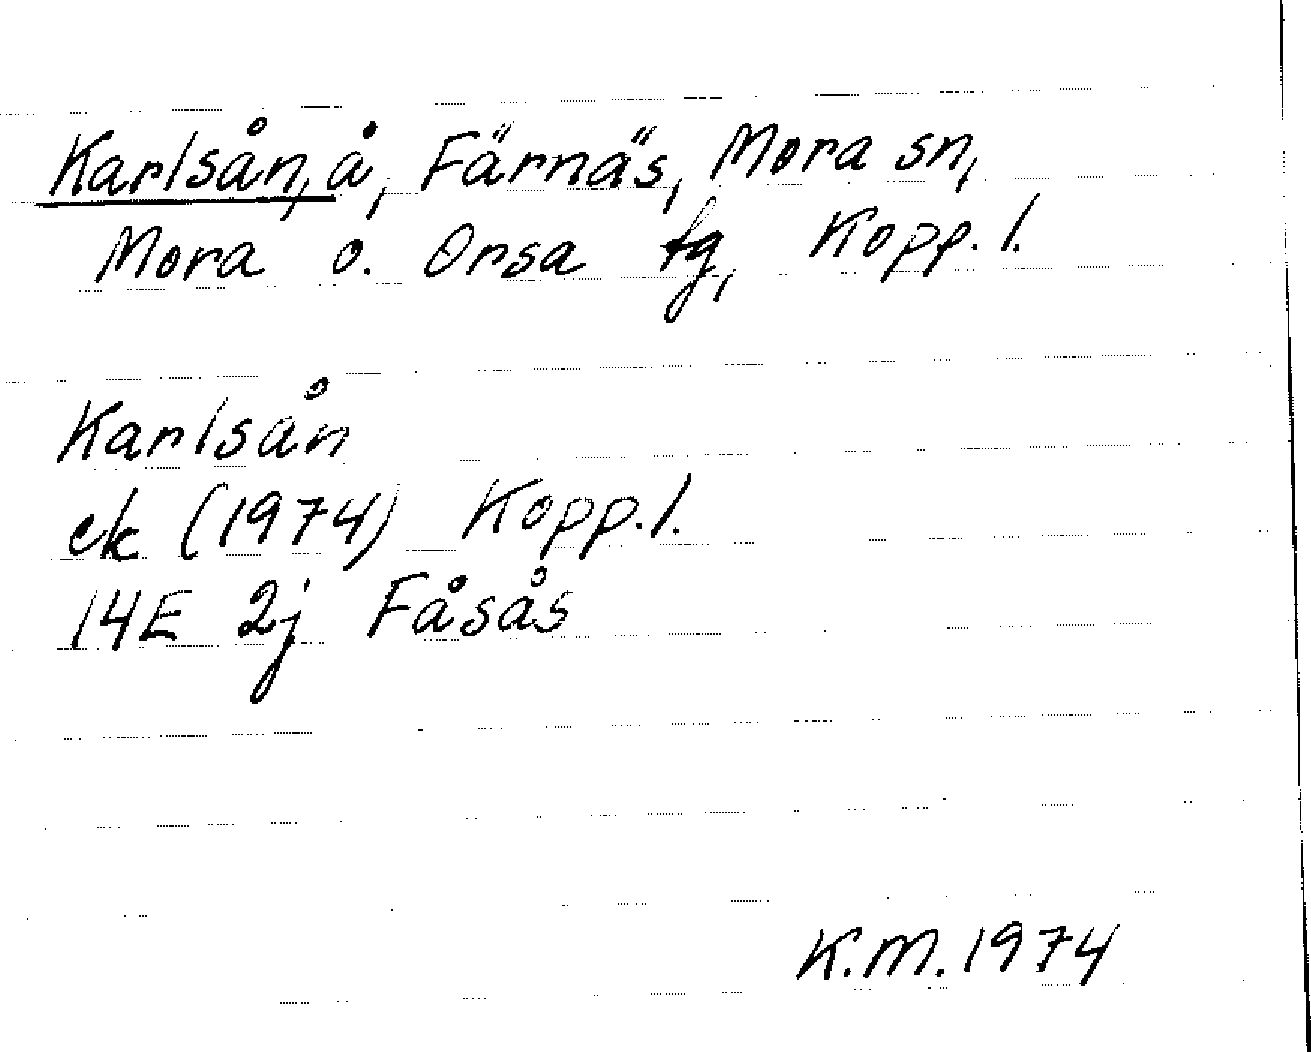 Karlsån, å, Färnäs, Mora sn,
Mora o. Orsa tg, Kopp. l.
Karlsån
ek (1974) Kopp. l.
14E 2j Fåsås
K.M. 1974